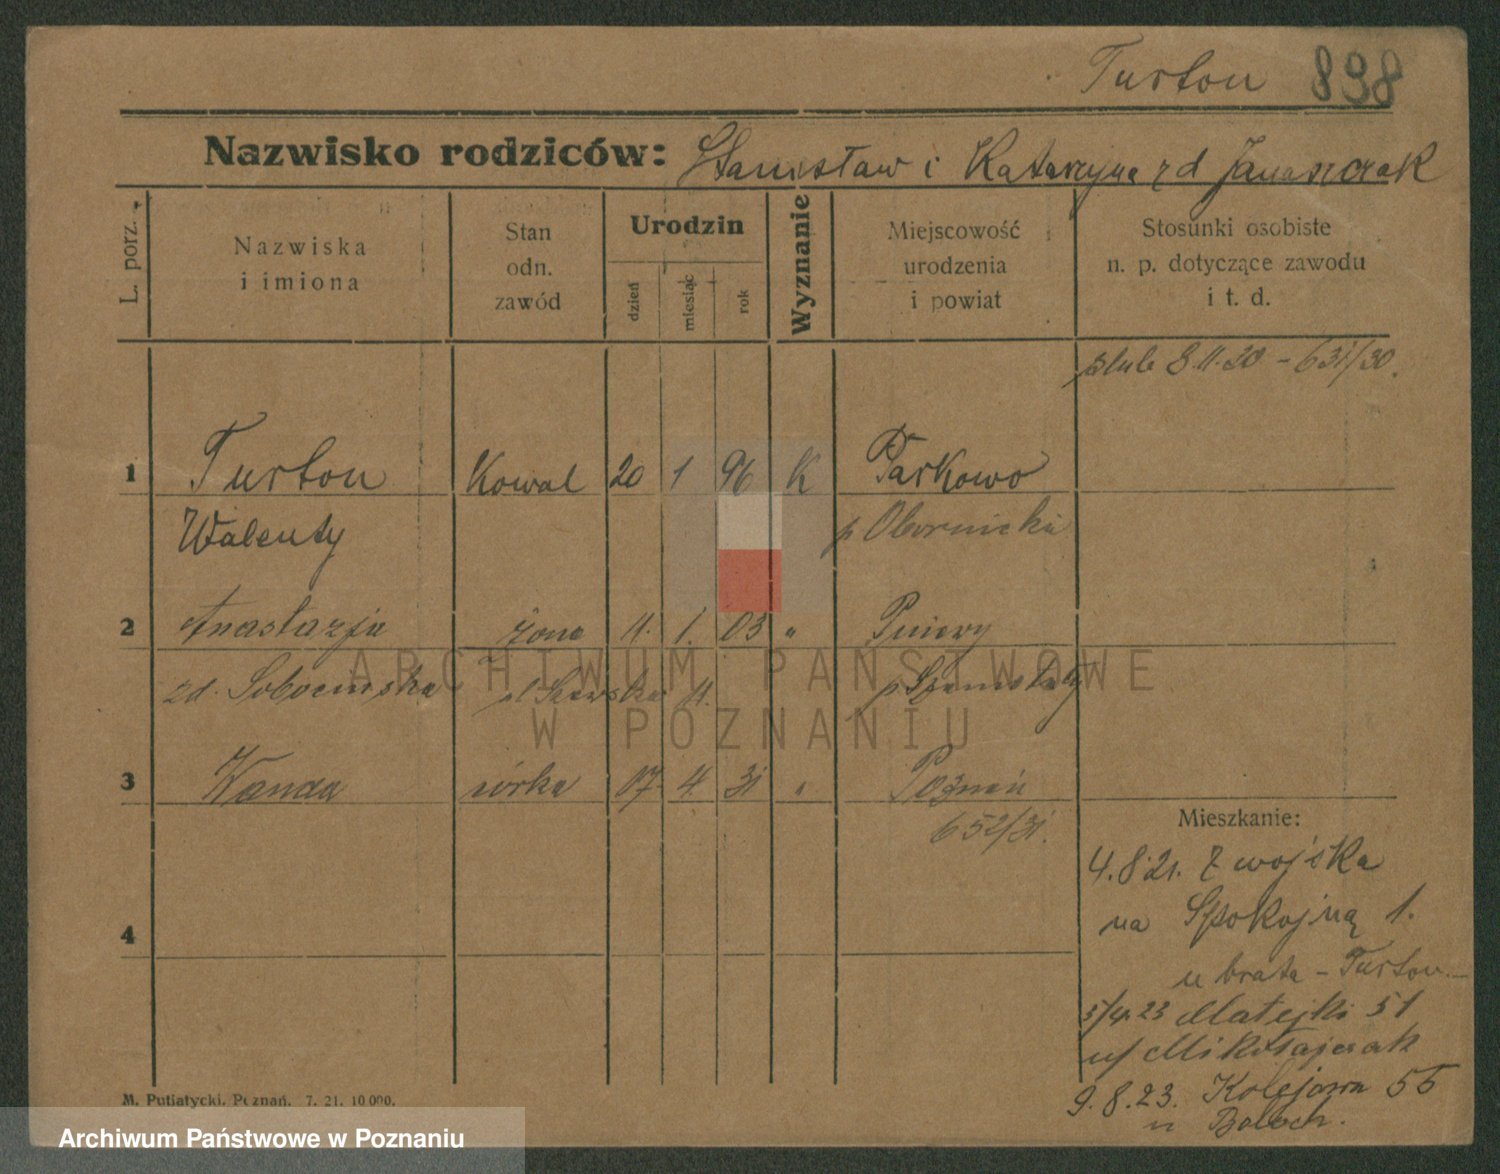 Turton 898
Nazwisko rodziców: Stanisław i Katarzyna zd Janaszczak
L. porz.
Nazwiska
i imiona
Stan
odn.
zawód
Urodzin
dzień
miesiąc
rok
Wyznanie
Miejscowość
urodzenia
i powiat
Stosunki osobiste
n. p. dotyczące zawodu
i t. d.
ślub 8.11.30 - 631/30.
1 Turton Kowal 20 1 96 K Parkowo
Walenty p Obornicki
2 Anastazja żona 11. 1. 03 „ Pniewy
zd. Sobocinska 11. p Szamotuły
3 Wanda córka 07. 4 31 „ Poznań
652/31.
Mieszkanie:
4.8.21. Z wojska
na Spokojną 1.
4
u brata - Turton
5/4.23 Matejki 51
u/ Mikołajczak
9.8.23. Kolejowa 55
u
M. Putiatycki, Poznań. 7. 21. 10 000.
ARCHIWUM PAŃSTWOWE
W POZNANIU
Archiwum Państwowe w Poznaniu